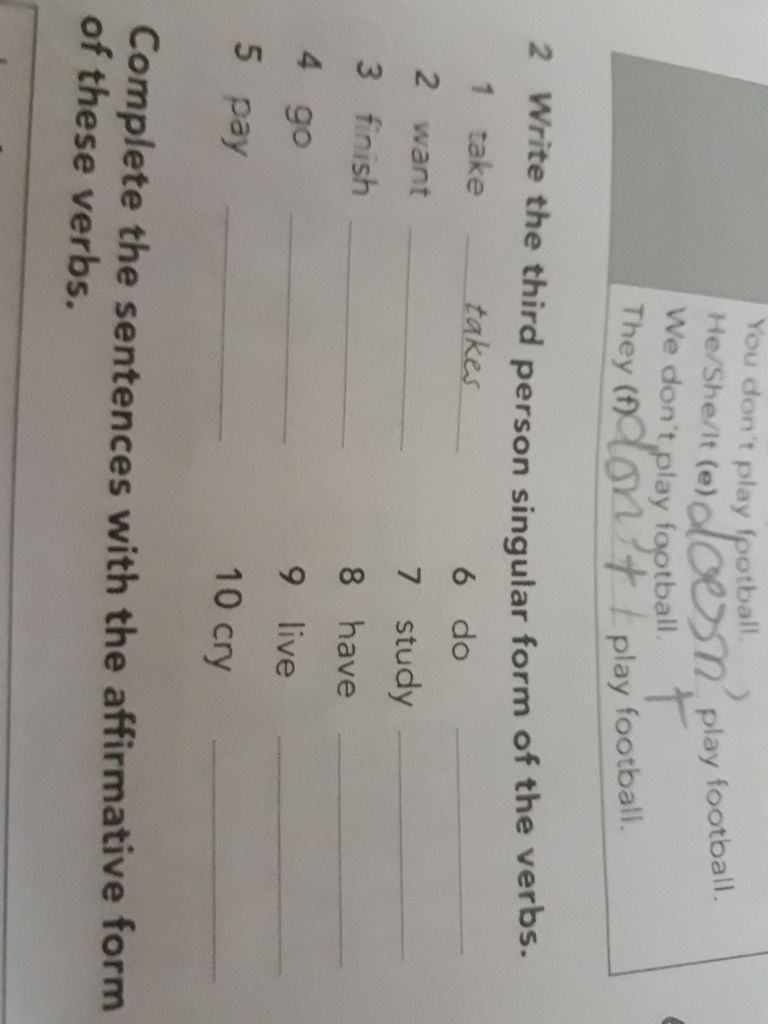 You don't play football.
He/She/It (e) doesn't play football.
We don't play football.
They (f) don't play football.
2 Write the third person singular form of the verbs.
1 take takes
2 want
3 finish
4 go
5 pay
6 do
7 study
8 have
9 live
10 cry
Complete the sentences with the affirmative form
of these verbs.